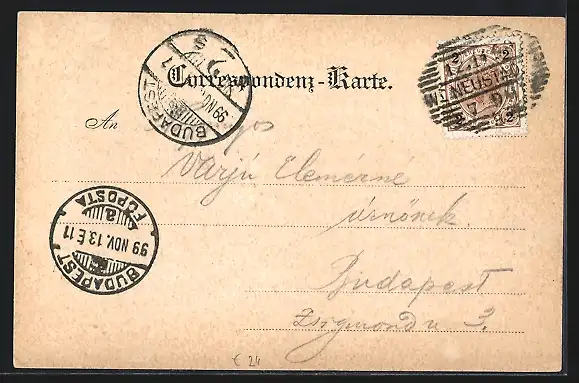 Correspondenz-Karte.
An
Varjú Elemérné
úrnőnek.
Budapest
Zsigmond u 3.
€ 24
BUDAPEST
FŐPOSTA
a
99 NOV. 13. É 11
BUDAPEST
99 NOV
NEUSTADT
2
2
2